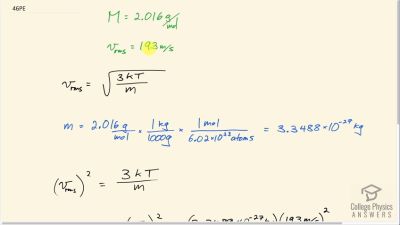 46PE
M = 2.016 g/mol
v_rms = 193 m/s
v_rms = √(3kT/m)
m = 2.016 g/mol × 1 kg/1000g × 1 mol/6.02×10^23 atoms = 3.3488×10^-27 kg
(v_rms)^2 = 3kT/m
(193 m/s)^2
College Physics
ANSWERS